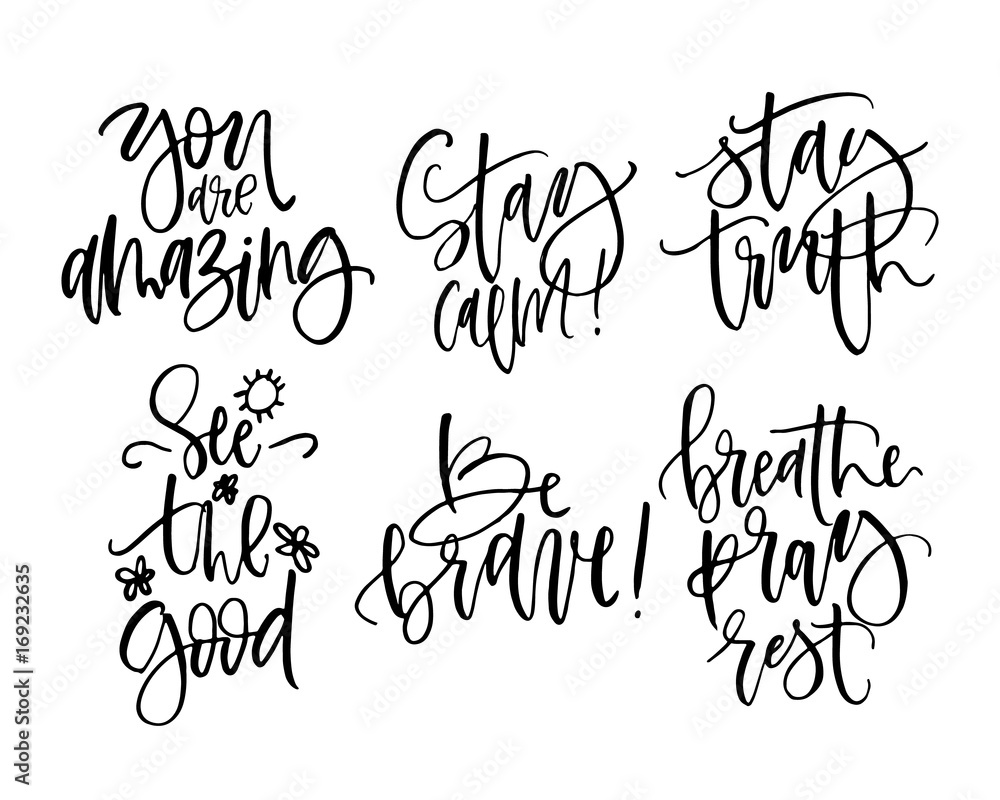 you
are
amazing
Stay
calm!
stay
truth
See
the
good
Be
brave!
breathe
pray
rest
Adobe Stock | #169232635